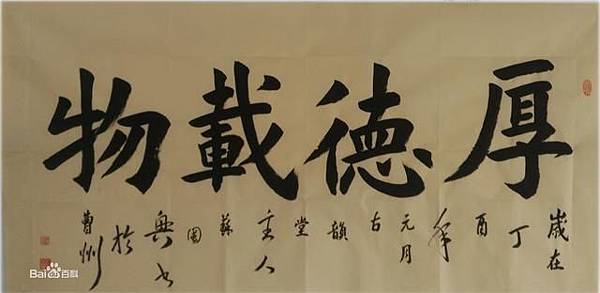 厚德載物
歲在丁酉年元月古韻堂主人蘇國興書於曹州
Bai百科